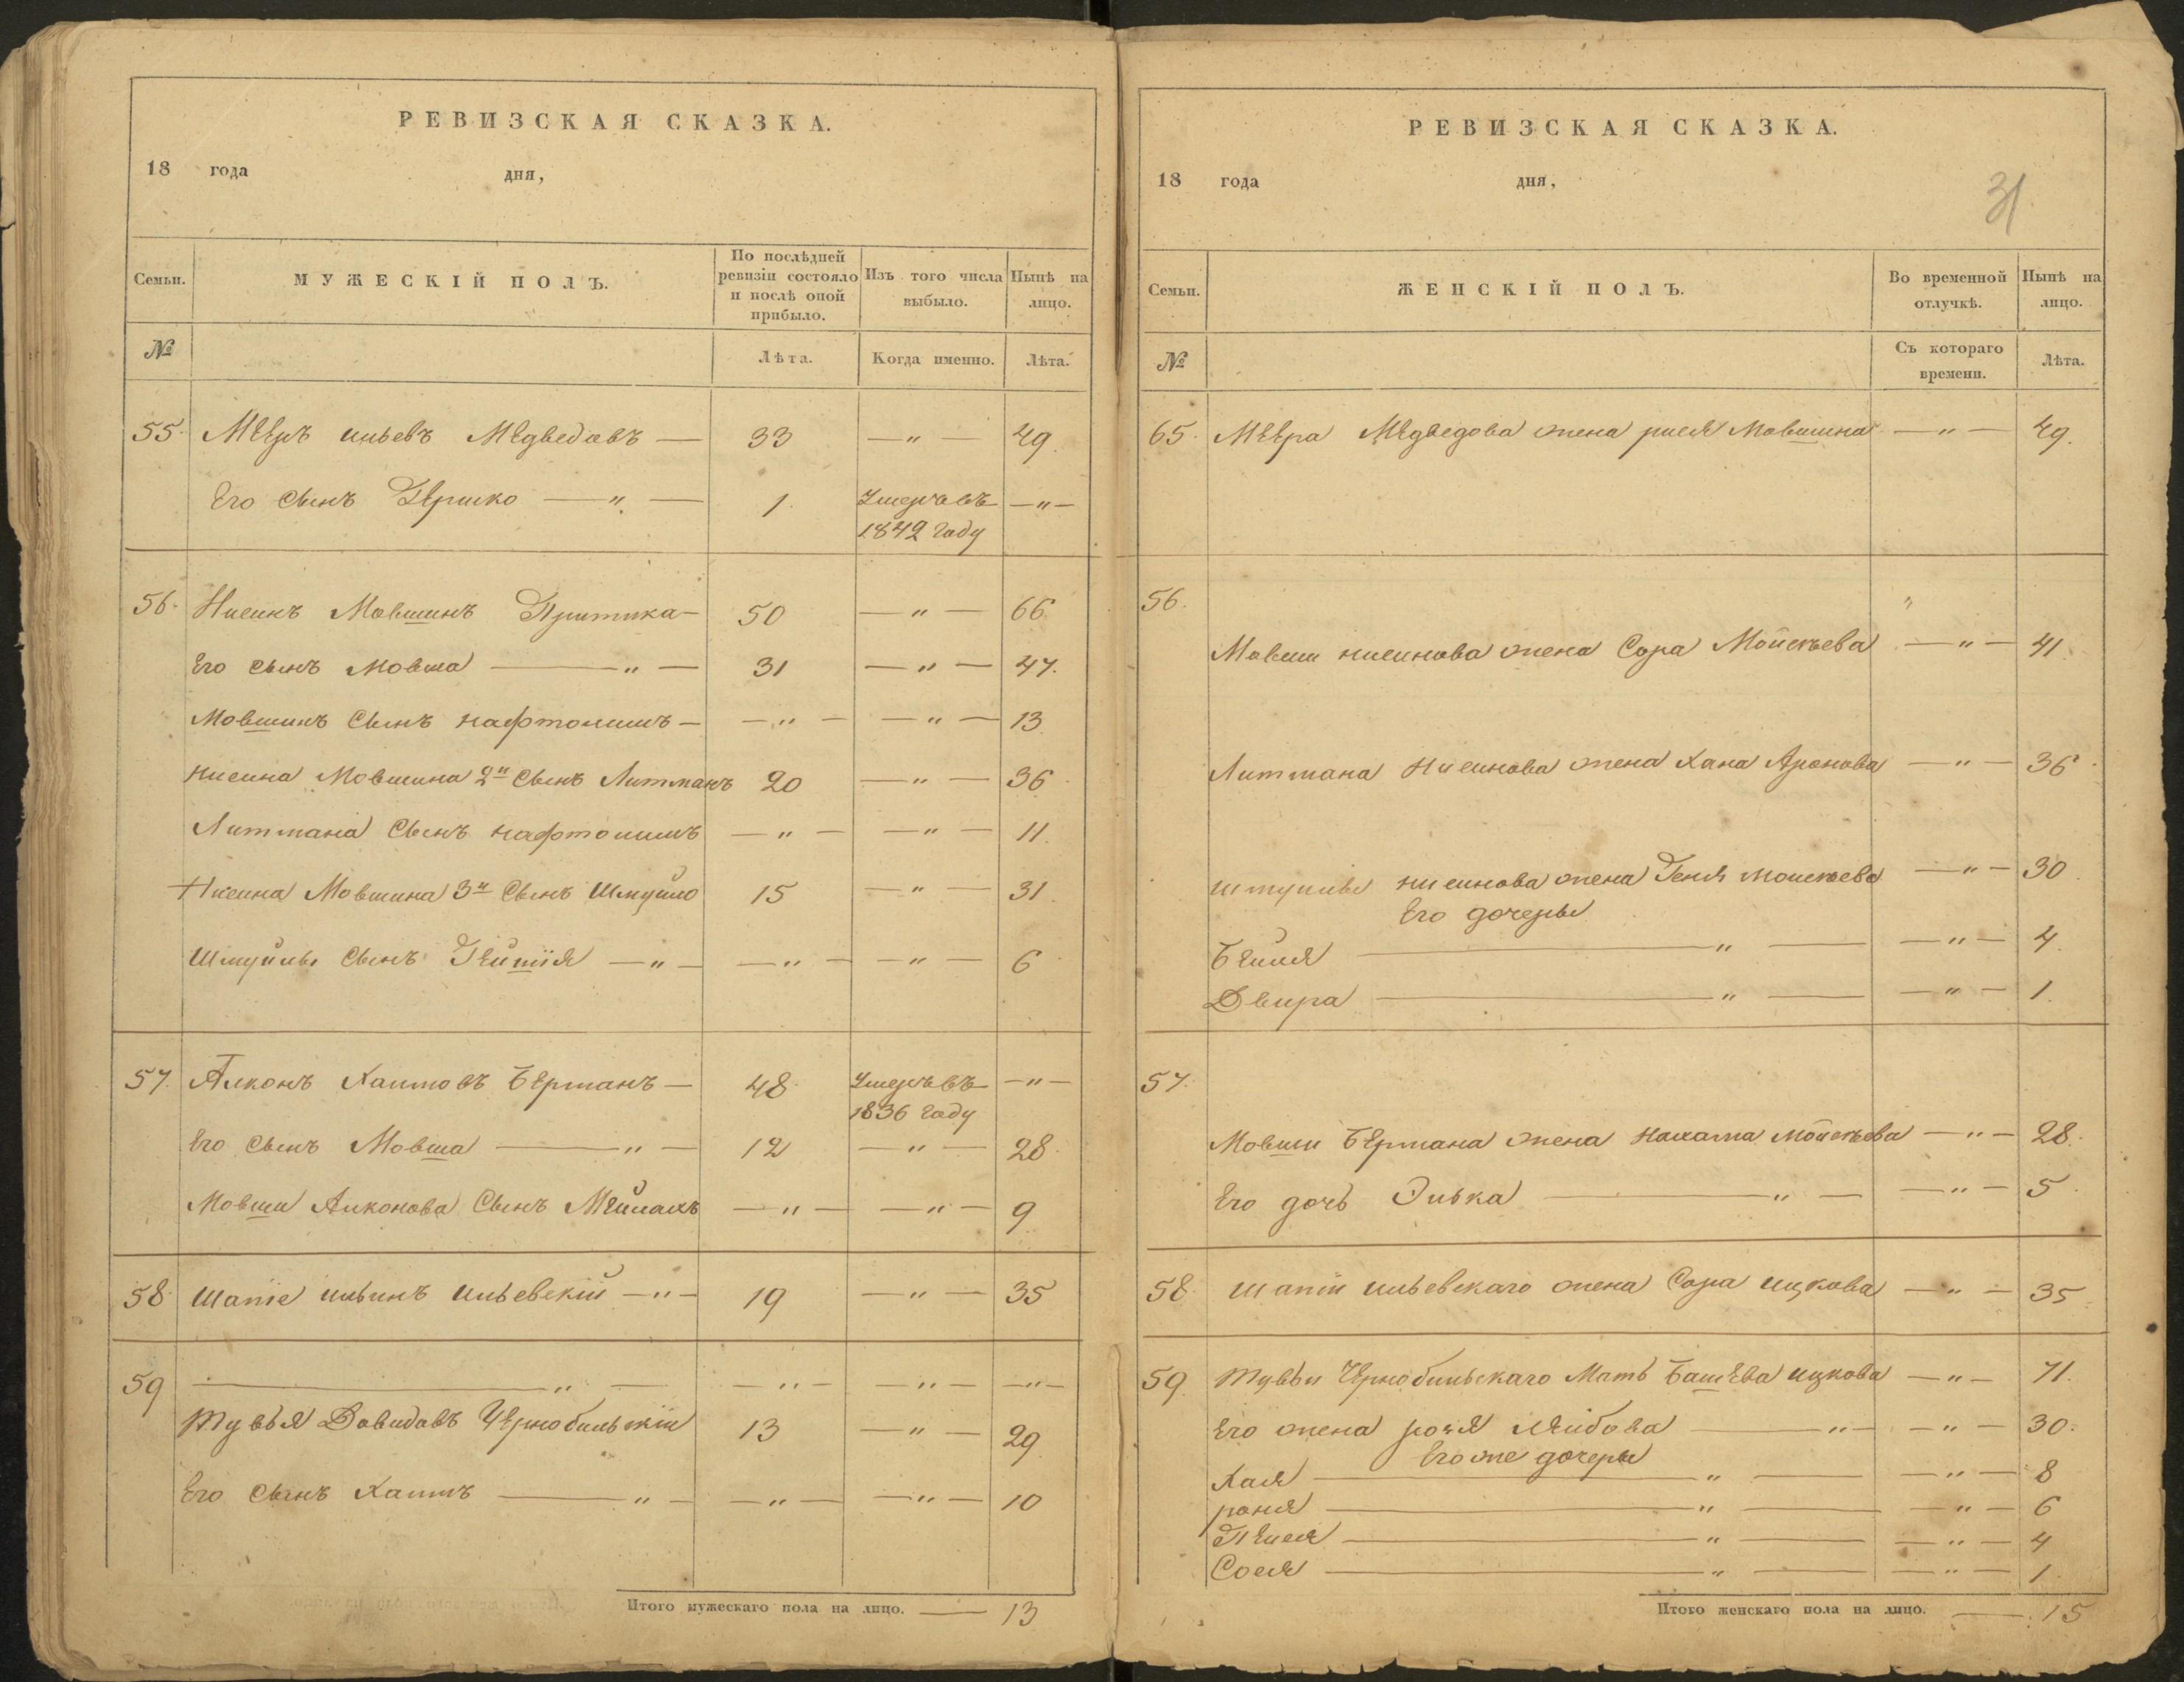 РЕВИЗСКАЯ СКАЗКА.
18 года дня,
Семьи. МУЖЕСКІЙ ПОЛЪ. По послѣдней ревизіи состояло и послѣ оной прибыло. Изъ того числа выбыло. Нынѣ на лицо.
№ Лѣта. Когда именно. Лѣта.
55. Мееръ ильевъ Медведовъ — 33 — " — 49.
Его сынъ Гершко — " — 1. Умеръ въ 1842 году — " —
56. Нисинъ Мовшинъ Притика — 50 — " — 66
Его сынъ Мовша — " — 31 — " — 47.
Мовшинъ Сынъ нафтолимъ — — " — — " — 13
нисина Мовшина 2й Сынъ Литманъ 20 — " — 36
Литмана Сынъ нафтолимъ — " — — " — 11.
Нисина Мовшина 3й Сынъ Шмуйло 15 — " — 31.
Шмуйлы Сынъ — " — — " — — " — 6
57. Алконъ Хаимовъ Берманъ — 48 Умеръ въ 1836 году — " —
Его сынъ Мовша — " — 12 — " — 28
Мовши Алконова Сынъ Мейлахъ — " — — " — 9
58 Шапіе ильинъ ильевскій — " — 19 — " — 35
59 — " — — " — — " — — " —
Тувья Давидовъ Чернобильскій 13 — " — 29
Его сынъ Хаимъ — " — — " — — " — 10
Итого мужескаго пола на лицо. — 13
РЕВИЗСКАЯ СКАЗКА.
18 года дня,
31
Семьи. ЖЕНСКІЙ ПОЛЪ. Во временной отлучкѣ. Нынѣ на лицо.
№ Съ котораго времени. Лѣта.
65. Меера Медведова жена рися Мовшина — " — 49.
56. "
Мовши нисинова жена Сора Мойсеева — " — 41
Литмана Нисинова жена Хана Аронова — " — 36
Шмуйлы нисинова жена Геня мойсеева — " — 30
Его дочеры
Бейля — " — — " — 4.
Двира — " — — " — 1.
57.
Мовши Бермана жена Нахама мойсеева — " — 28.
Его дочь Элька — " — — " — 5
58. Шапіи ильевскаго жена Сора ицкова — " — 35
59. Тувьи Чернобильскаго Мать Башева ицкова — " — 71.
Его жена Лейбова — " — — " — 30.
Его же дочеры
Хая — " — — " — 8
роня — " — — " — 6
Песя — " — — " — 4
Сося — " — — " — 1
Итого женскаго пола на лицо. — 15